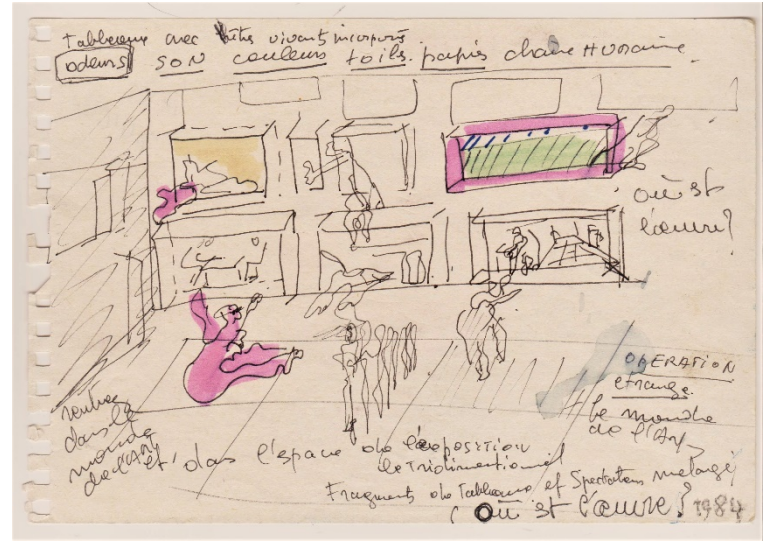 Tableaux avec êtres vivants incorporés
odeurs SON couleurs toiles. papiers chaire HUMAINE
où est
l'œuvre?
OPERATION
etrange.
le monde
de l'Art
rentrer
dans le
monde
de l'Art
et dans l'espace de l'exposition
le Tridimentionnel
Fragments de Tableaux et Spectateurs melangé
(Où est l'œuvre? 1984